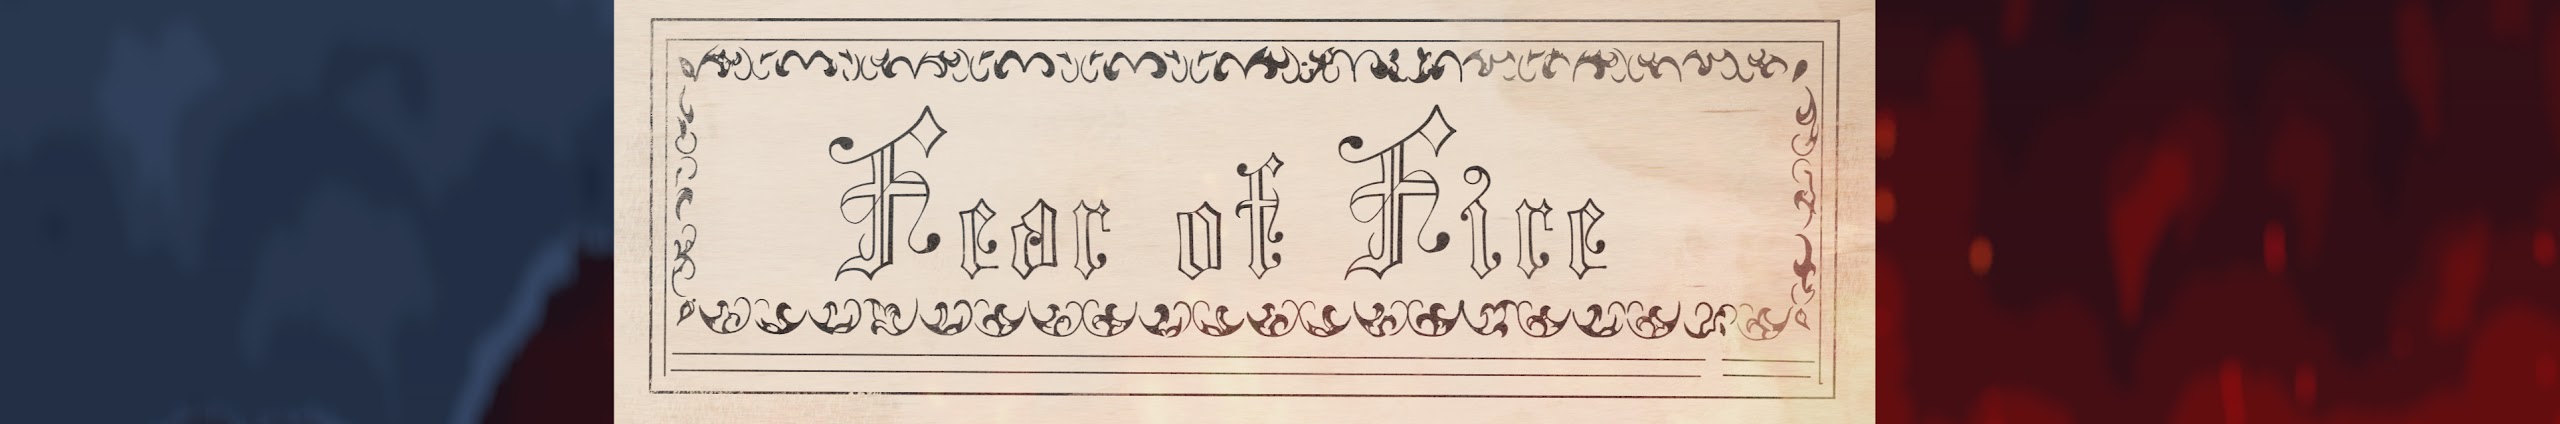 Fear of Fire